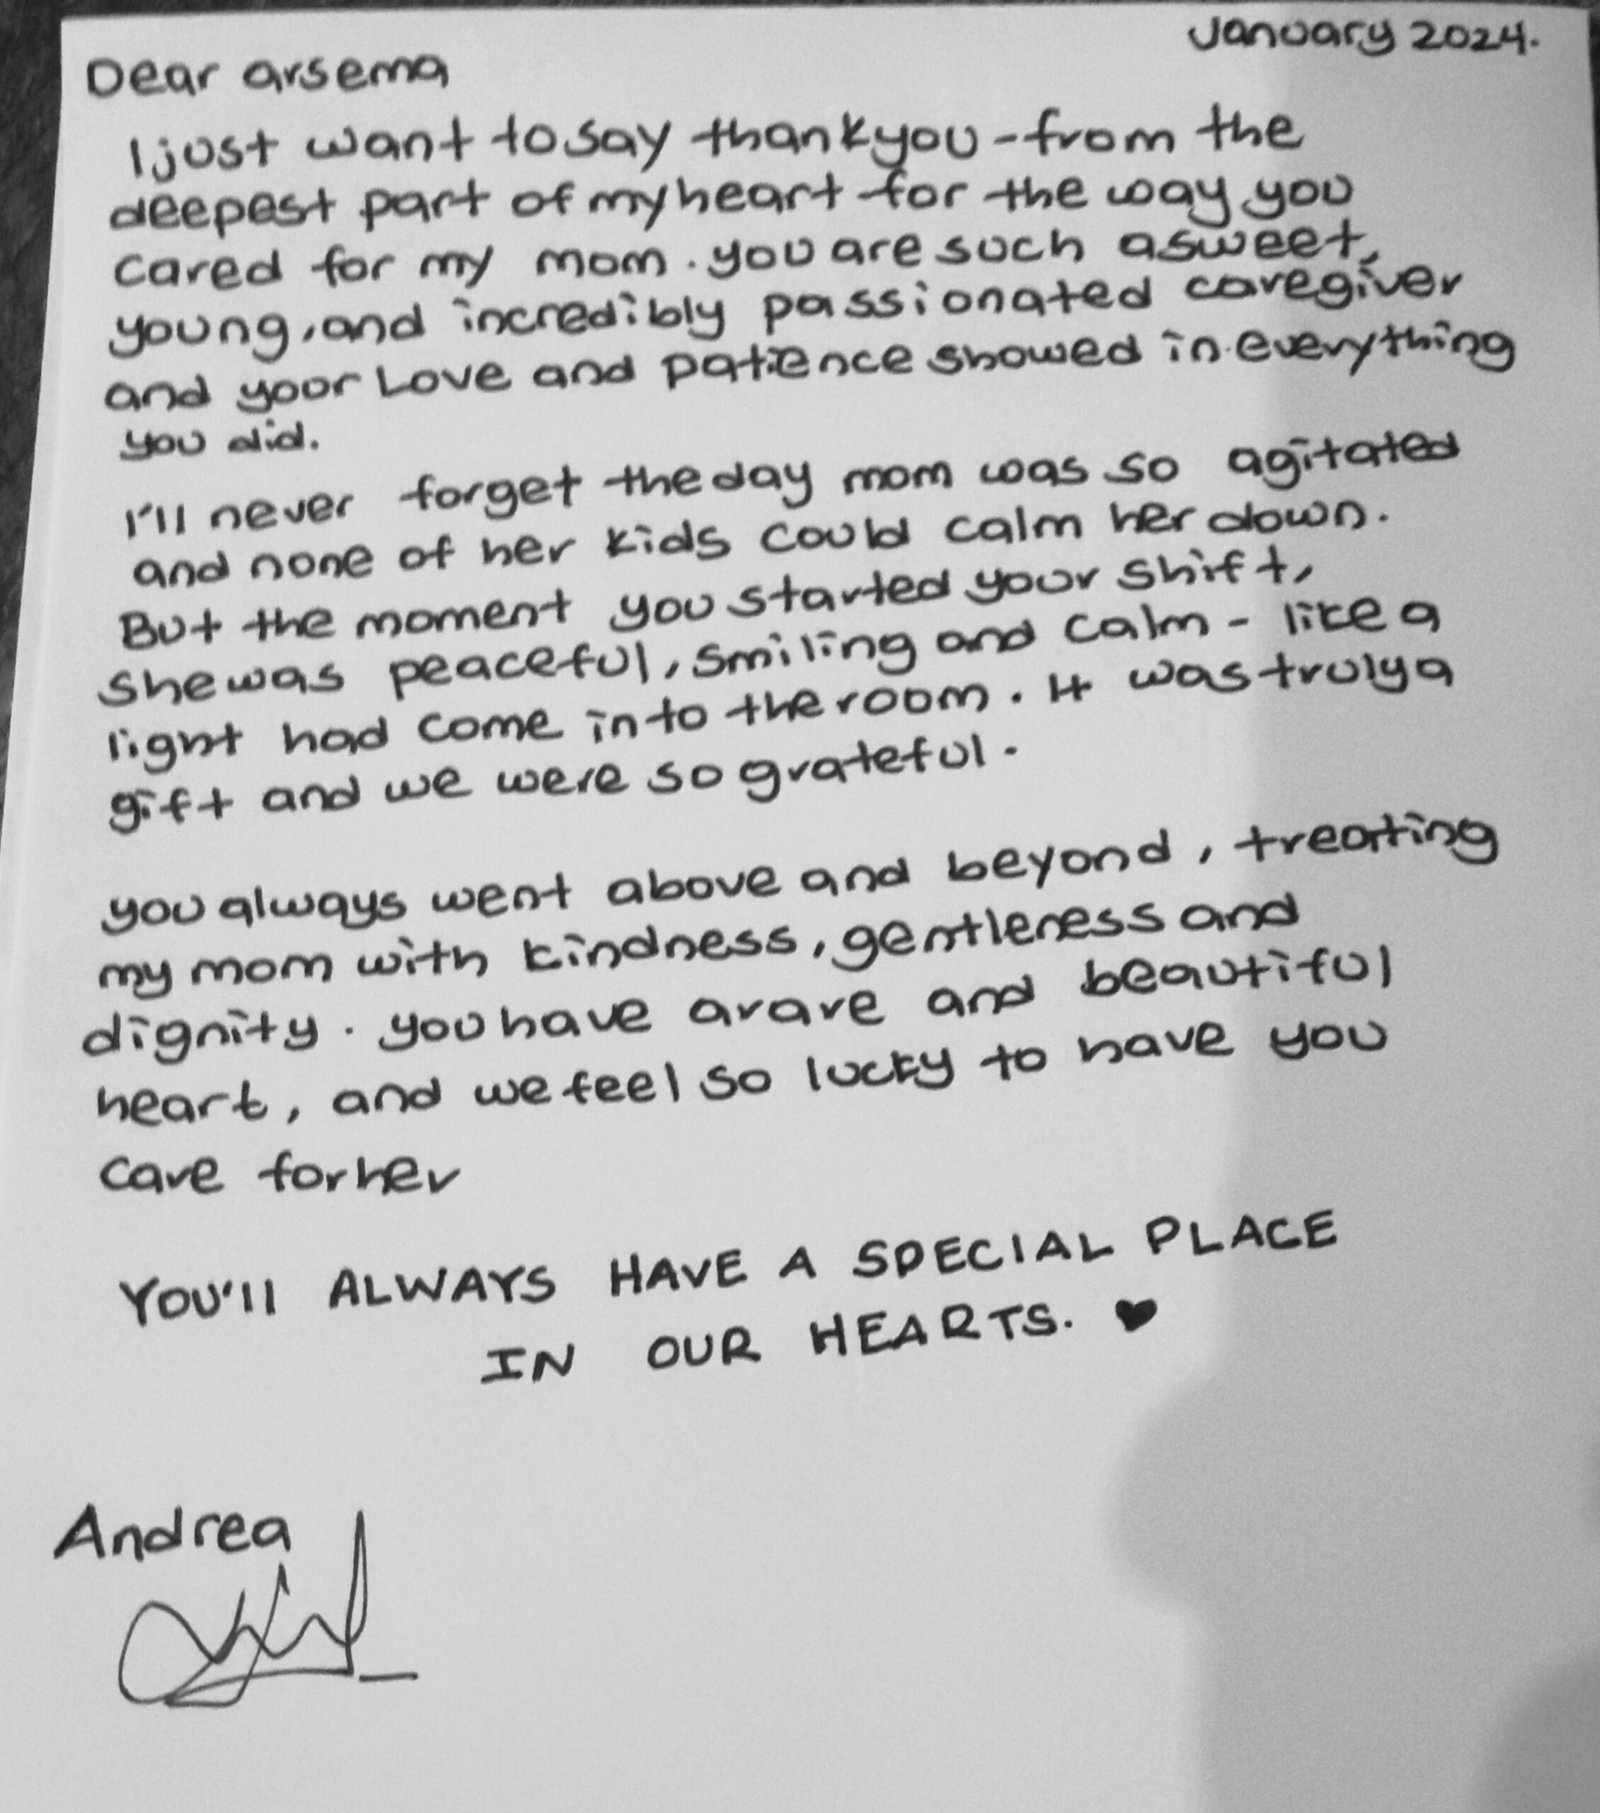 January 2024.
Dear arsema
I just want to say thank you - from the
deepest part of my heart for the way you
cared for my mom. you are such a sweet,
young, and incredibly passionated caregiver
and your Love and patience showed in everything
you did.
I'll never forget the day mom was so agitated
and none of her kids could calm her down.
But the moment you started your shift,
she was peaceful, smiling and calm - like a
light had come into the room. It was truly a
gift and we were so grateful.
you always went above and beyond, treating
my mom with kindness, gentleness and
dignity. you have a rare and beautiful
heart, and we feel so lucky to have you
care for her
YOU'll ALWAYS HAVE A SPECIAL PLACE
IN OUR HEARTS. ♥
Andrea